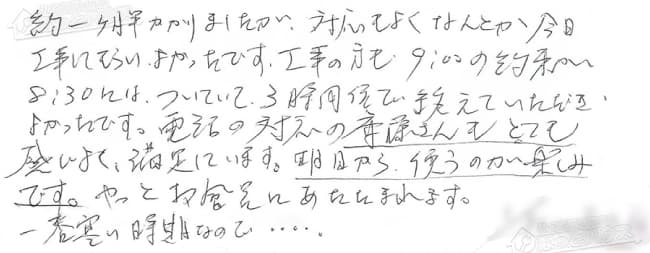 約一ヶ月半かかりましたが、対応もよくなんとか今日
工事してもらいよかったです。工事の方も9:00の約束が
8:30には、ついていて、3時間位で終えていただき、
よかったです。電話の対応の斉藤さんもとても
感じよく、満足しています。明日から、使うのが楽しみ
です。やっとお風呂にあたたまれます。
一番寒い時期なので……。